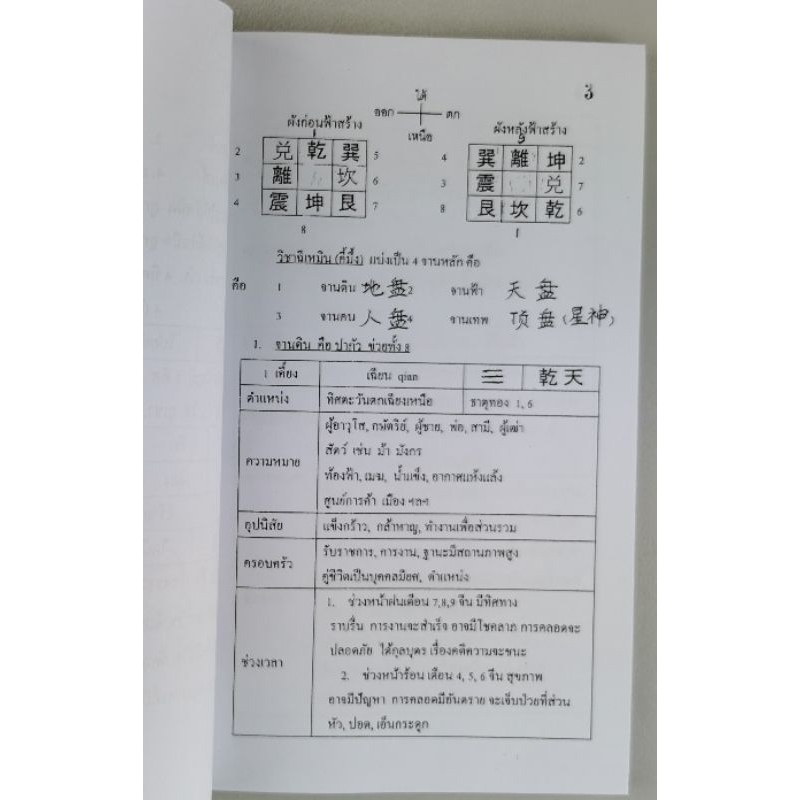 3
ใต้
ออก ตก
เหนือ
ผังก่อนฟ้าสร้าง ผังหลังฟ้าสร้าง
1 9
2 兑 乾 巽 5 4 巽 離 坤 2
3 離 坎 6 3 震 兑 7
4 震 坤 艮 7 8 艮 坎 乾 6
8 1
วิชาฉีเหมิน (กี้มึ้ง) แบ่งเป็น 4 จานหลัก คือ
คือ 1 จานดิน 地盘 2 จานฟ้า 天盘
3 จานคน 人盘 4 จานเทพ 顶盘 (星神)
1. จานดิน คือ ปากัว ช่วยทั้ง 8
1 เคี้ยง เฉียน qian ☰ 乾天
ตำแหน่ง ทิศตะวันตกเฉียงเหนือ ธาตุทอง 1, 6
ความหมาย ผู้อาวุโส, กษัตริย์, ผู้ชาย, พ่อ, สามี, ผู้เฒ่า
สัตว์ เช่น ม้า มังกร
ท้องฟ้า, เมฆ, น้ำแข็ง, อากาศแห้งแล้ง
ศูนย์การค้า เมือง ฯลฯ
อุปนิสัย แข็งกร้าว, กล้าหาญ, ทำงานเพื่อส่วนรวม
ครอบครัว รับราชการ, การงาน, ฐานะมีสถานภาพสูง
คู่ชีวิตเป็นบุคคลมียศ, ตำแหน่ง
ช่วงเวลา 1. ช่วงหน้าฝนเดือน 7,8,9 จีน มีทิศทาง
ราบรื่น การงานจะสำเร็จ อาจมีโชคลาภ การคลอดจะ
ปลอดภัย ได้กุลบุตร เรื่องคดีความจะชนะ
2. ช่วงหน้าร้อน เดือน 4, 5, 6 จีน สุขภาพ
อาจมีปัญหา การคลอดมีอันตราย จะเจ็บป่วยที่ส่วน
หัว, ปอด, เอ็นกระดูก